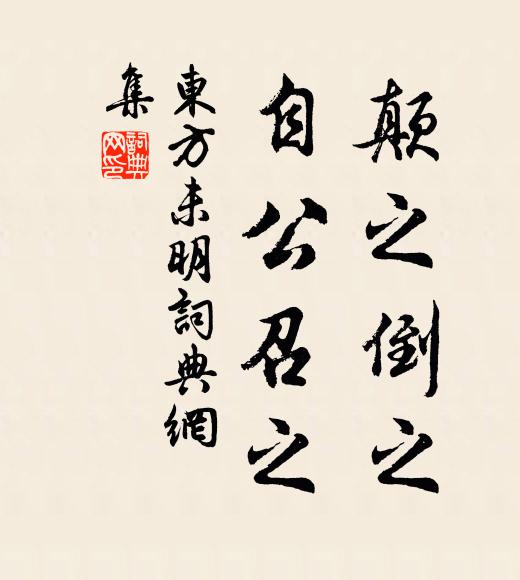 顛之倒之
自公召之
東方未明詞典網
集
詞典
网印